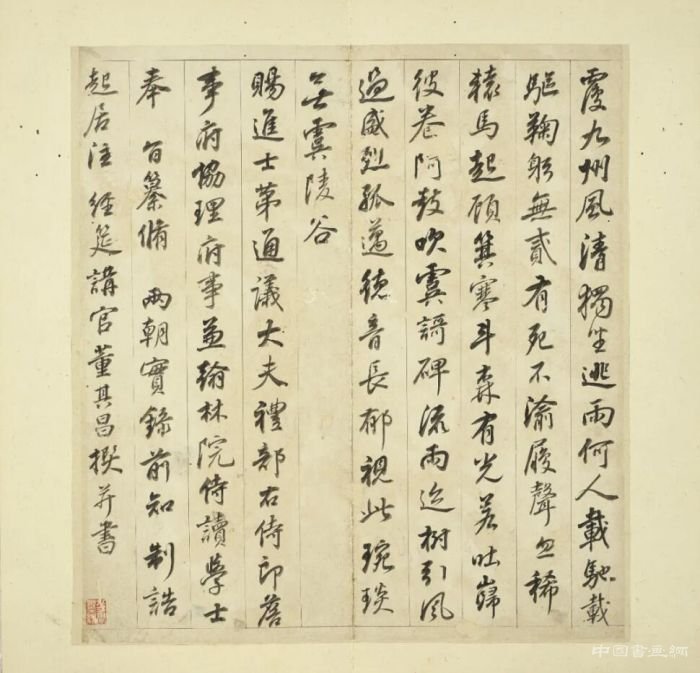 霞九州風清獨坐逃兩何人載馳載
驅鞠躬無貳有死不渝履聲忽稀
轅馬起顧箕寒斗森有光芒吐歸
彼卷阿鼓吹虞謌碑流雨迄樹引風
過盛烈孤邁德音長郁視此琬琰
虞陵谷
賜進士第通議大夫禮部右侍郎詹
事府協理府事兼翰林院侍讀學士
奉旨纂脩兩朝實錄前知制誥
起居注經筵講官董其昌撰并書
中国書画網